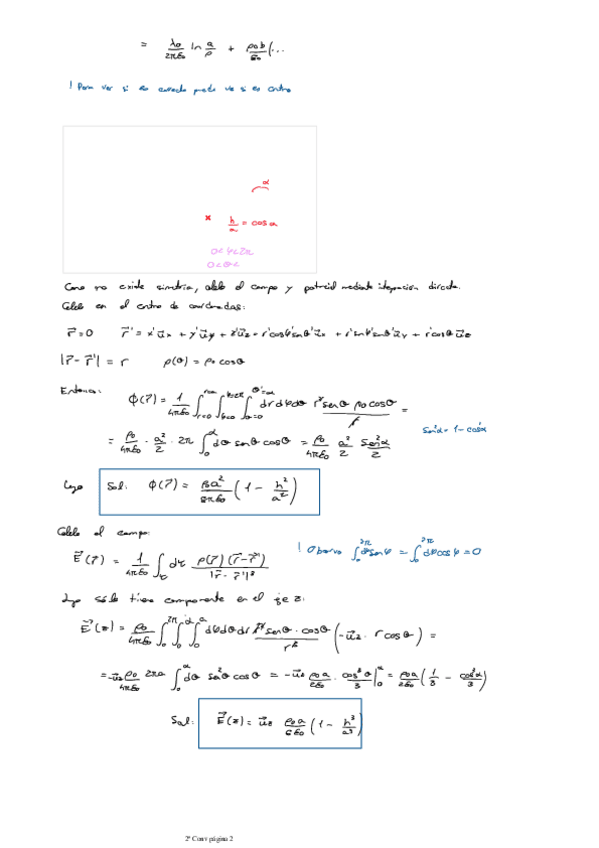 = λ₀/2πε₀ ln a/ρ + ρ₀b/ε₀ (...
! Para ver si es correcto puedo ver si es
α
× h/a = cos α
0<φ<2π
0<θ<
Como no existe simetría, el campo y potencial mediante integración directa.
en el centro de coordenadas:
r⃗=0 r⃗' = x'u⃗x + y'u⃗y + z'u⃗z = r'cosφ'senθ'u⃗x + r'senφ'senθ'u⃗y + r'cosθ u⃗z
|r⃗ - r⃗'| = r ρ(θ) = ρ₀ cosθ
Entonces:
ϕ(r⃗) = 1/4πε₀ ∫r=0^r=a ∫φ=0^φ=2π ∫θ=0^θ'=α dr dφ dθ r² senθ ρ₀ cosθ / r =
= ρ₀/4πε₀ · a²/2 · 2π ∫₀^α dθ senθ cosθ = ρ₀/4πε₀ a²/2 sen²α/2
sen²α = 1 - cos²α
Luego Sol: ϕ(r⃗) = ρ₀a²/8πε₀ (1 - h²/a²)
el campo:
E⃗(r⃗) = 1/4πε₀ ∫τ dτ ρ(r⃗)(r⃗-r⃗')/|r⃗-r⃗'|³
! Observo ∫₀^2π dφ senφ = ∫₀^2π dφ cosφ = 0
Luego sólo tiene componente en el eje z:
E⃗(z) = ρ₀/4πε₀ ∫₀^2π ∫₀^α ∫₀^a dφ dθ dr r² senθ · cosθ / r³ (-u⃗z · r cosθ) =
= -u⃗z ρ₀/4πε₀ 2πa ∫₀^α dθ sen²θ cosθ = -u⃗z ρ₀a/2ε₀ · cos³θ/3 |₀^α = ρ₀a/2ε₀ (1/3 - cos³α/3)
Sol: E⃗(z) = u⃗z ρ₀a/6ε₀ (1 - h³/a³)
2ª Conv página 2